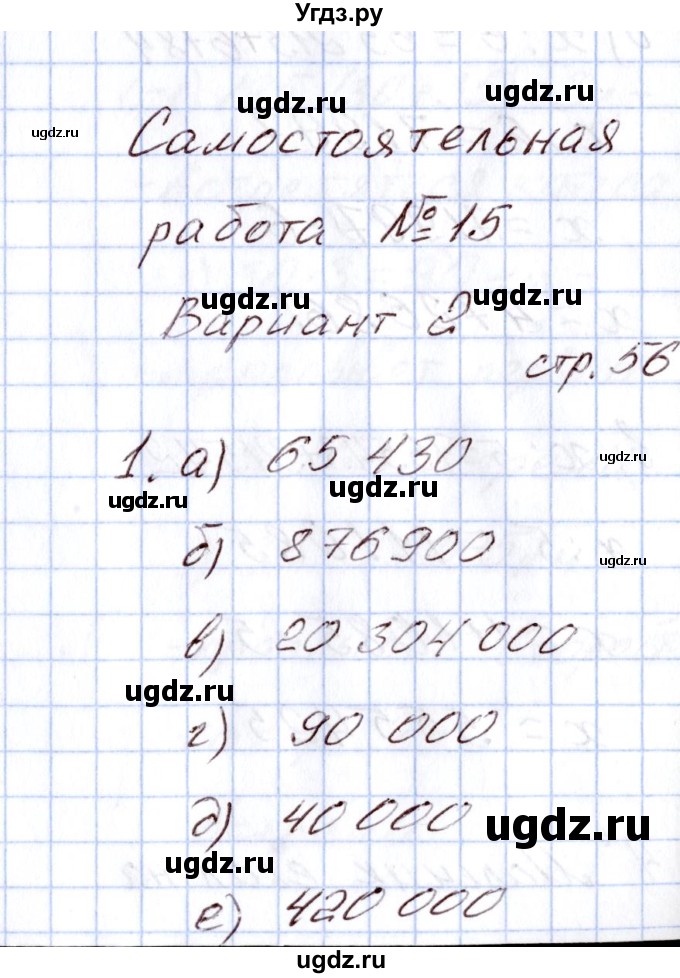 Угдз.ру
ugdz.ru
ugdz.ru
ugdz.ru
Самостоятельная
работа № 15
ugdz.ru
ugdz.ru
Вариант 2
стр. 56
1. а) 65 430
ugdz.ru
ugdz.ru
ugdz.ru
б) 876 900
ugdz.ru
в) 20 304 000
ugdz.ru
г) 90 000
д) 40 000
ugdz.ru
ugdz.ru
е) 420 000
ugdz.ru